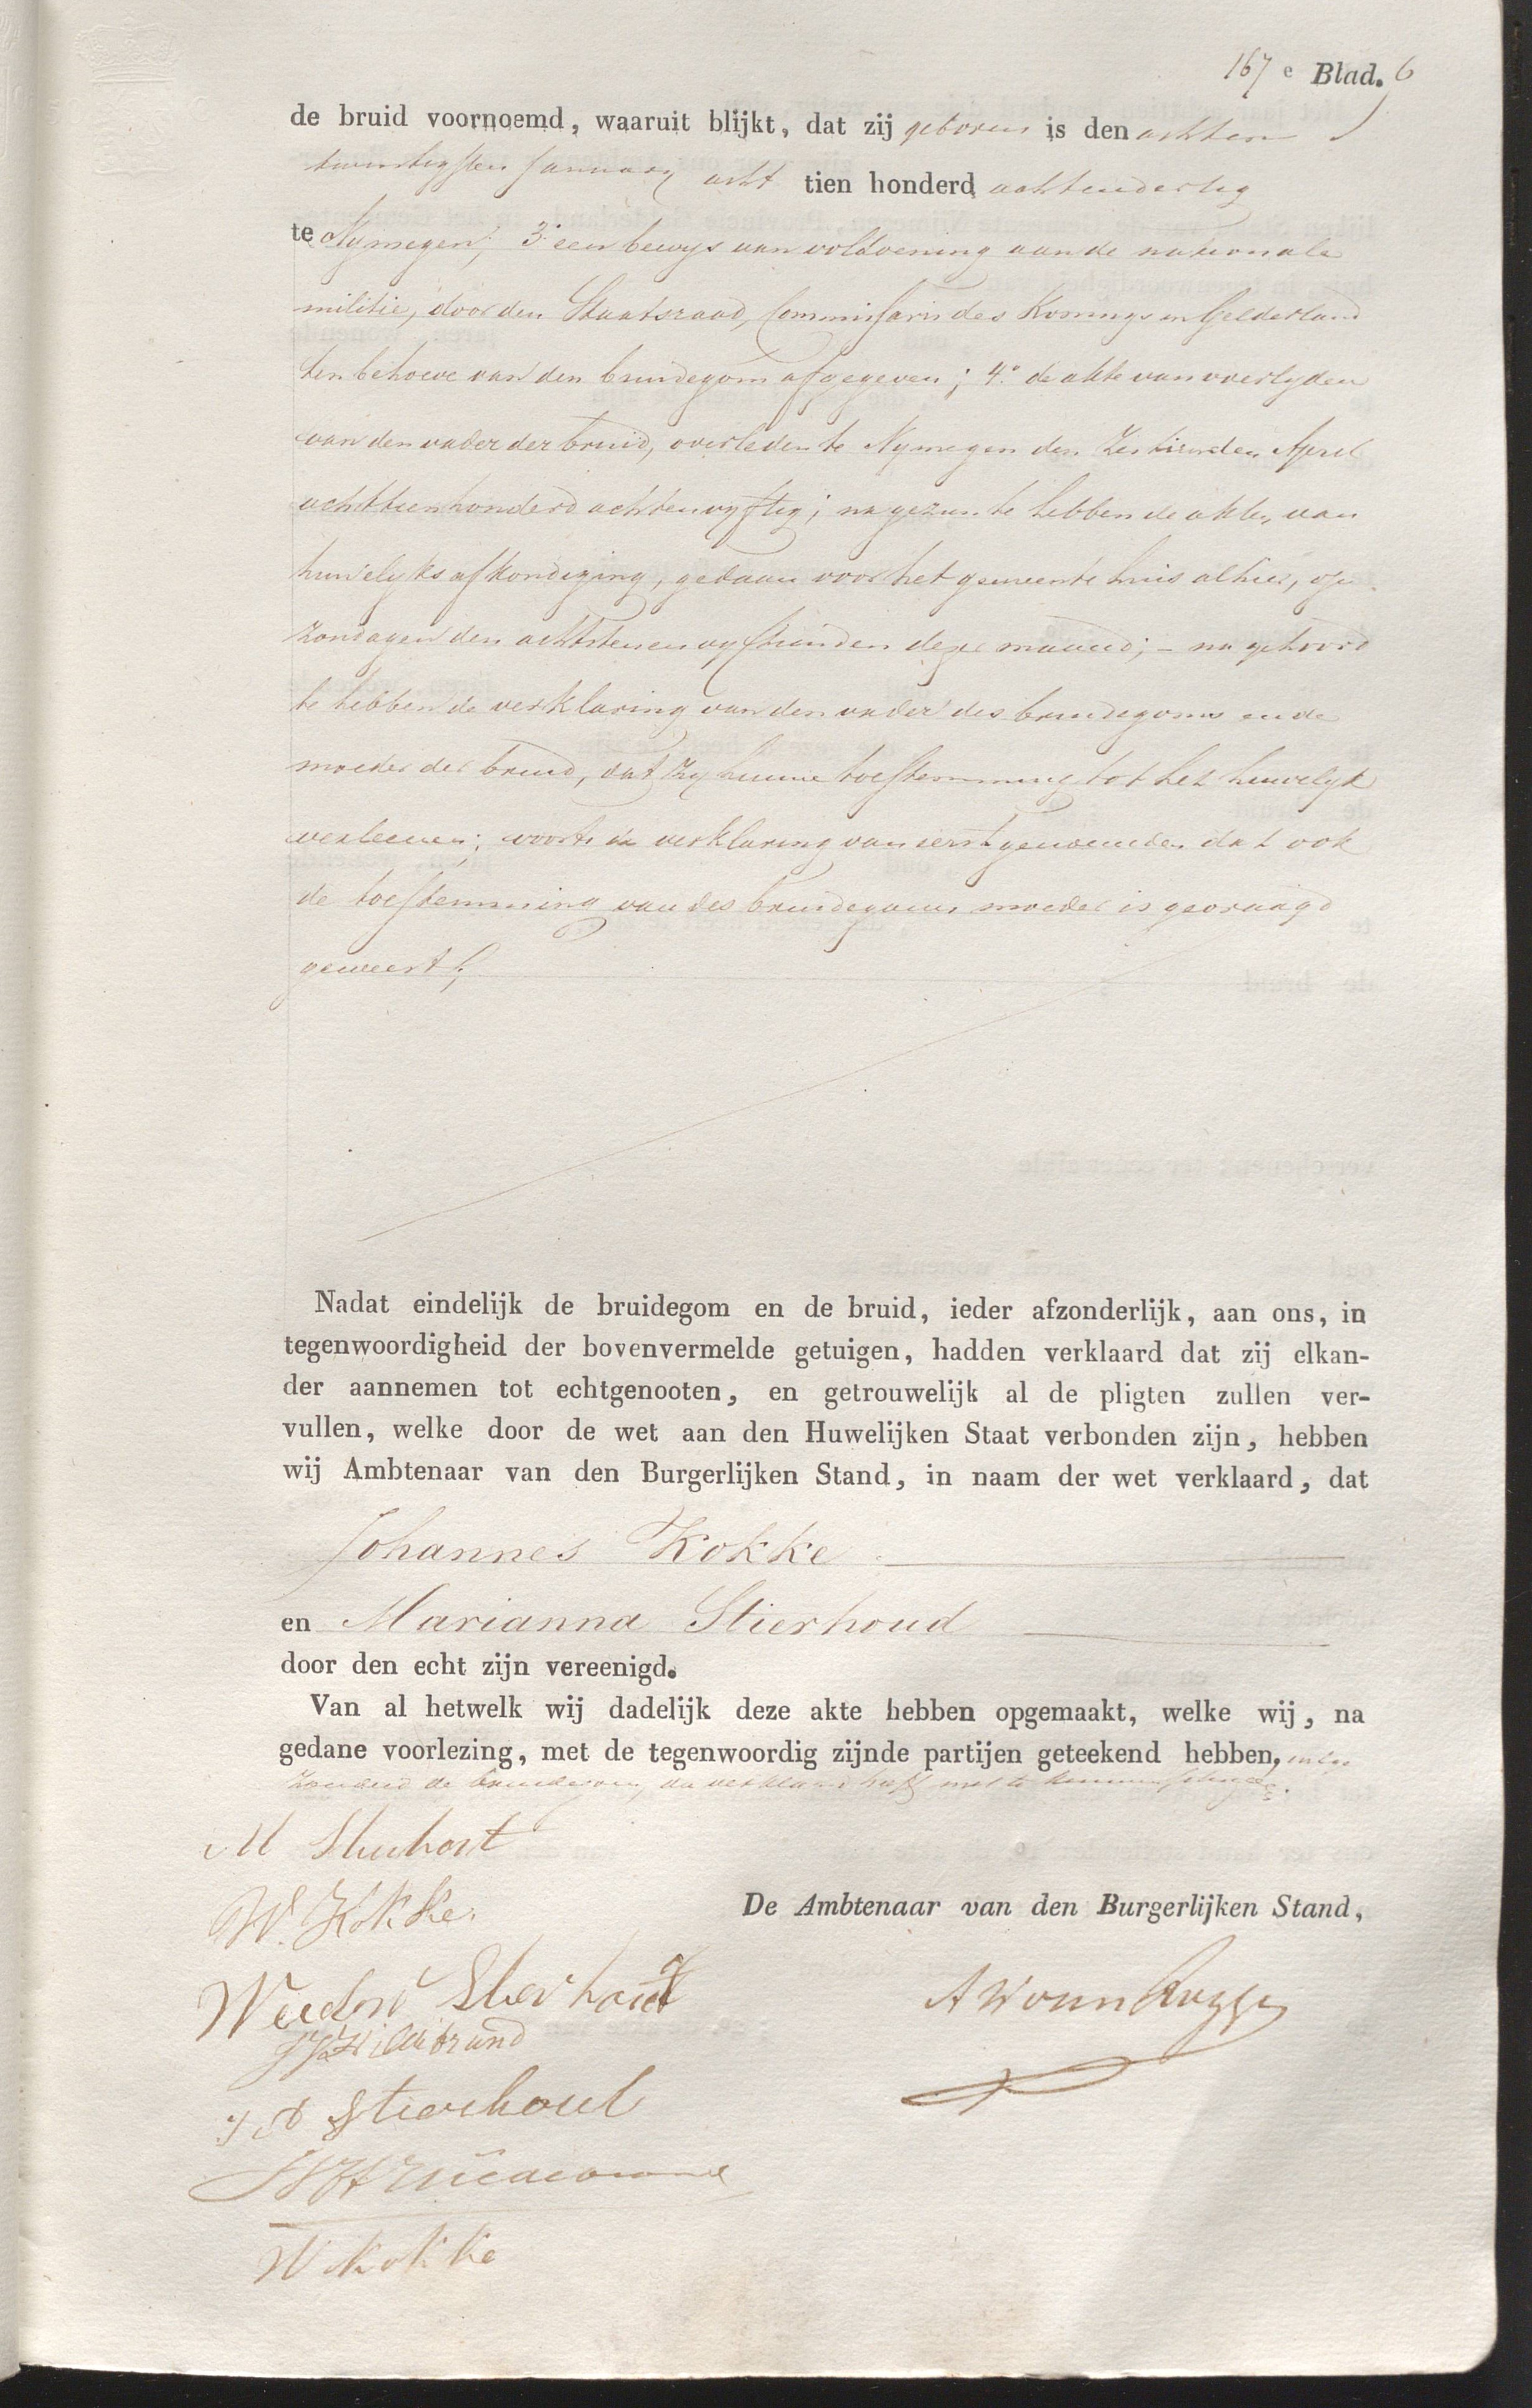 167 e Blad. 6
de bruid voornoemd, waaruit blijkt, dat zij geboren is den achten
twintigsten January acht tien honderd achtendertig
te Nymegen; 3° een bewys van voldoening aan de nationale
militie, door den Staatsraad, Commissaris des Konings in Gelderland
ten behoeve van den bruidegom afgegeven; 4° de akte van overlyden
van den vader der bruid, overleden te Nymegen den Zestienden April
achttienhonderd achtenvyftig; na gezien te hebben de akten van
huwelyks afkondiging, gedaan voor het gemeente huis alhier, op
Zondagen den achtsten en vyftienden dezer maand; – na gehoord
te hebben de verklaring van den vader des bruidegoms en de
moeder der bruid, dat zy hunne toestemming tot het huwelyk
verleenen; voorts de verklaring van eerstgenoemden dat ook
de toestemming van des bruidegoms moeder is gevraagd
geweest;
Nadat eindelijk de bruidegom en de bruid, ieder afzonderlijk, aan ons, in
tegenwoordigheid der bovenvermelde getuigen, hadden verklaard dat zij elkan-
der aannemen tot echtgenooten, en getrouwelijk al de pligten zullen ver-
vullen, welke door de wet aan den Huwelijken Staat verbonden zijn, hebben
wij Ambtenaar van den Burgerlijken Stand, in naam der wet verklaard, dat
Johannes Kokke
en Marianna Stierhoud
door den echt zijn vereenigd.
Van al hetwelk wij dadelijk deze akte hebben opgemaakt, welke wij, na
gedane voorlezing, met de tegenwoordig zijnde partijen geteekend hebben, uitge
zonderd de bruidegom, die verklaard heeft niet te kunnen schryven.
M
W. Kokke.
De Ambtenaar van den Burgerlijken Stand,
Stierhoud
Hillebrand
Stierhout
W Kokke